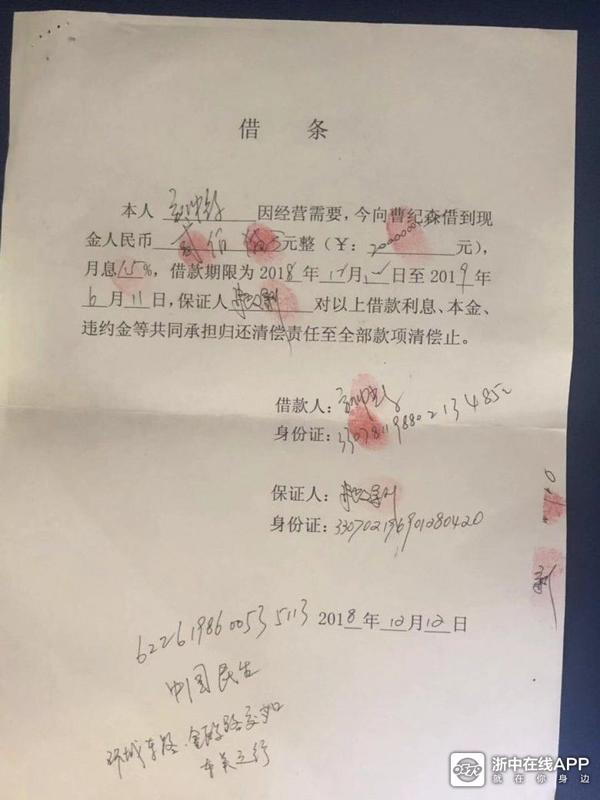 借 条
本人 因经营需要，今向曹纪森借到现
金人民币 佰 万元整（￥：2000000 元），
月息1.5%，借款期限为2018年12月12日至2019年
6月11日，保证人 对以上借款利息、本金、
违约金等共同承担归还清偿责任至全部款项清偿止。
借款人：
身份证：
保证人：
身份证：330702196901280420
2018年12月12日
6226198600535113
中国民生
环城东路·金 路交如
浙中在线APP
就在你身边